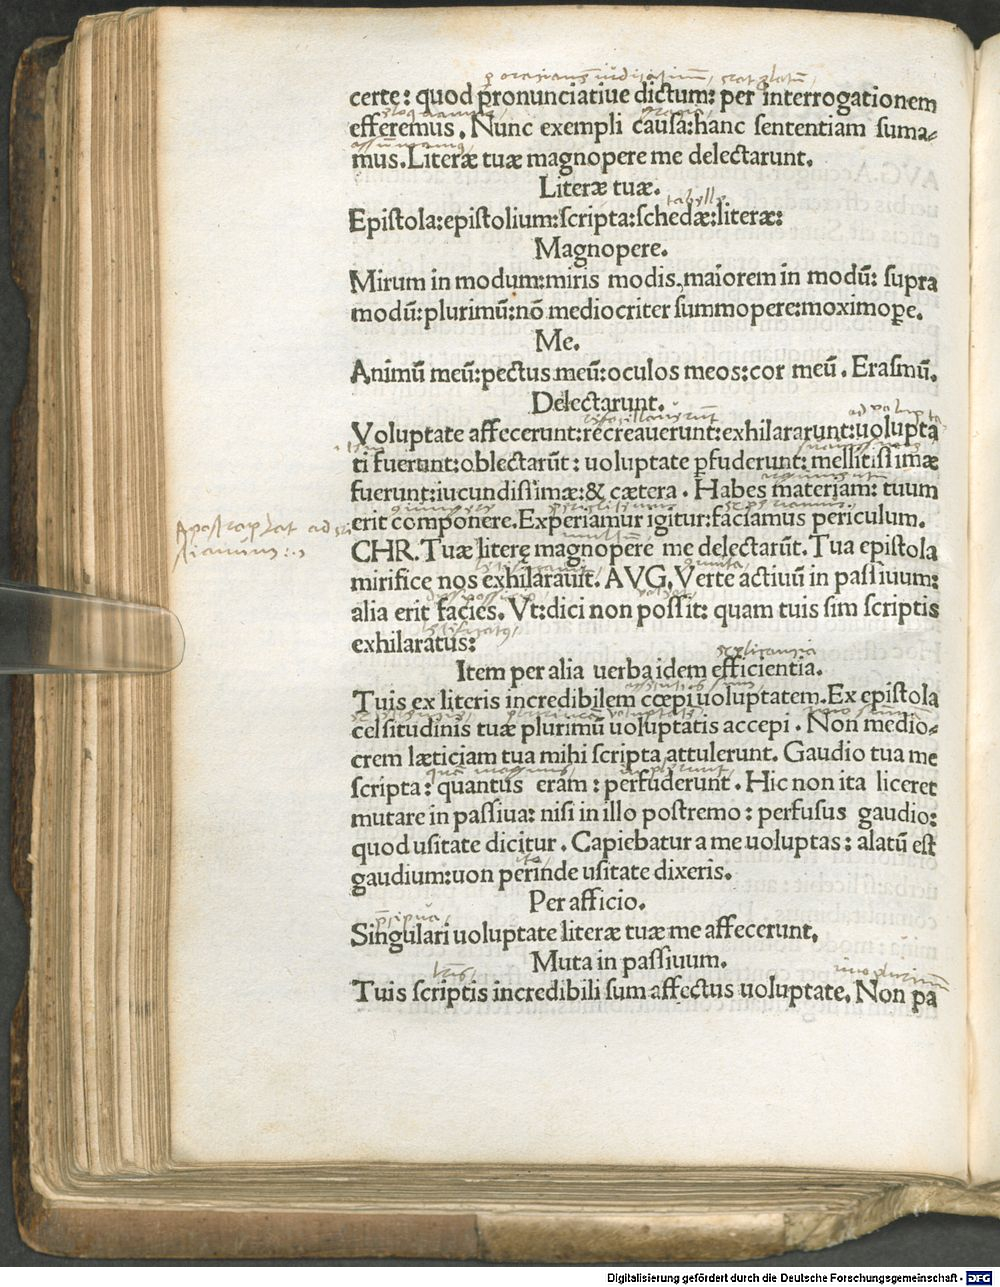 certe: quod pronunciatiue dictum: per interrogationem
efferemus. Nunc exempli causa: hanc sententiam suma-
mus. Literæ tuæ magnopere me delectarunt.
Literæ tuæ.
Epistola: epistolium: scripta: schedæ: literæ:
Magnopere.
Mirum in modum: miris modis, maiorem in modū: supra
modū: plurimū: nō mediocriter summopere: moximoꝑe.
Me.
Animū meū: pectus meū: oculos meos: cor meū. Erasmū.
Delectarunt.
Voluptate affecerunt: recreauerunt: exhilararunt: uolupta
ti fuerunt: oblectarūt: uoluptate ꝑfuderunt: mellitissimæ
fuerunt: iucundissimæ: & cætera. Habes materiam: tuum
erit componere. Experiamur igitur: faciamus periculum.
Apostrophat ad
CHR. Tuæ literę magnopere me delectarūt. Tua epistola
mirifice nos exhilarauit. AVG. Verte actiuū in passiuum:
alia erit facies. Vt: dici non possit: quam tuis sim scriptis
exhilaratus:
Item per alia uerba idem efficientia.
Tuis ex literis incredibilem cœpi uoluptatem. Ex epistola
celsitudinis tuæ plurimū uoluptatis accepi. Non medio-
crem læticiam tua mihi scripta attulerunt. Gaudio tua me
scripta: quantus eram: perfuderunt. Hic non ita liceret
mutare in passiua: nisi in illo postremo: perfusus gaudio:
quod usitate dicitur. Capiebatur a me uoluptas: alatū est
gaudium: uon perinde usitate dixeris.
Per afficio.
Singulari uoluptate literæ tuæ me affecerunt,
Muta in passiuum.
Tuis scriptis incredibili sum affectus uoluptate. Non pa
Digitalisierung gefördert durch die Deutsche Forschungsgemeinschaft - DFG